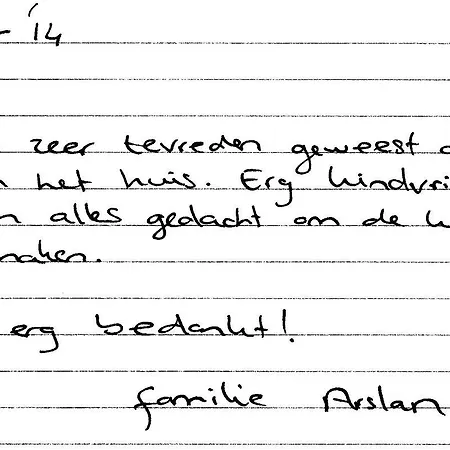 - '14
zeer tevreden geweest
het huis. Erg kindvri
alles gedacht om de
maken.
erg bedankt!
familie Arslan